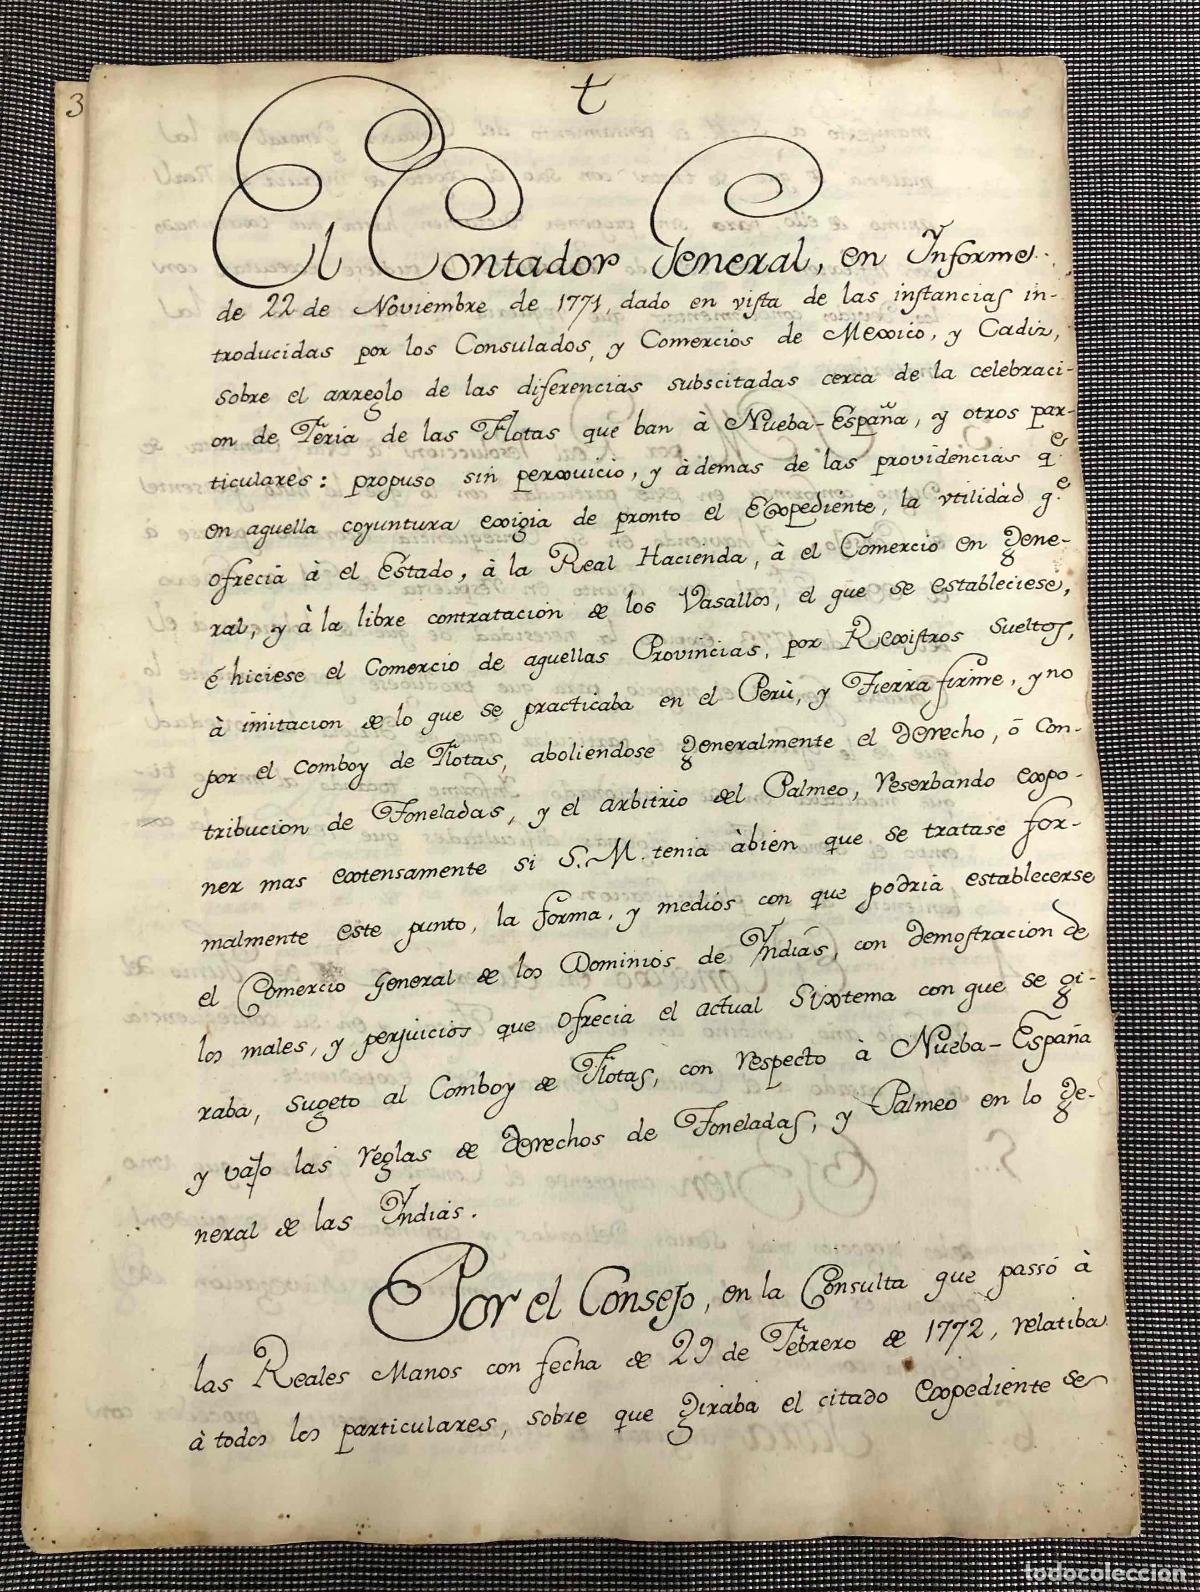 3
t
El Contador General, en Ynforme
de 22 de Noviembre de 1771, dado en vista de las instancias in-
troducidas por los Consulados, y Comercios de Mexico, y Cadiz,
sobre el arreglo de las diferencias subscitadas cerca de la celebraci-
on de Feria de las Flotas que ban à Nueba-España, y otros par-
ticulares: propuso sin perxuicio, y àdemas de las providencias q.e
en aquella coyuntura exigia de pronto el Expediente, la vtilidad q.e
ofrecia à el Estado, à la Real Hacienda, à el Comercio en gene-
ral, y à la libre contratacion de los Vasallos, el que se estableciese,
é hiciese el Comercio de aquellas Provincias, por Rexistros Sueltos,
à imitacion de lo que se practicaba en el Perù, y Tierra firme, y no
por el comboy de Flotas, aboliendose generalmente el derecho, ò con-
tribucion de Toneladas, y el arbitrio del Palmeo, reserbando expo-
ner mas extensamente si S. M. tenia àbien que se tratase for-
malmente este punto, la forma, y medios con que podria establecerse
el Comercio General de los Dominios de Yndias, con demostracion de
los males, y perjuicios que ofrecia el actual Sixtema con que se gi-
raba, sugeto al Comboy de Flotas, con respecto à Nueba-España
y vajo las reglas de derechos de Toneladas, y Palmeo en lo ge-
neral de las Yndias.
Por el Consejo, en la Consulta que passó à
las Reales Manos con fecha de 29 de Febrero de 1772, relatiba
à todos los particulares, sobre que giraba el citado Expediente se
todocoleccion